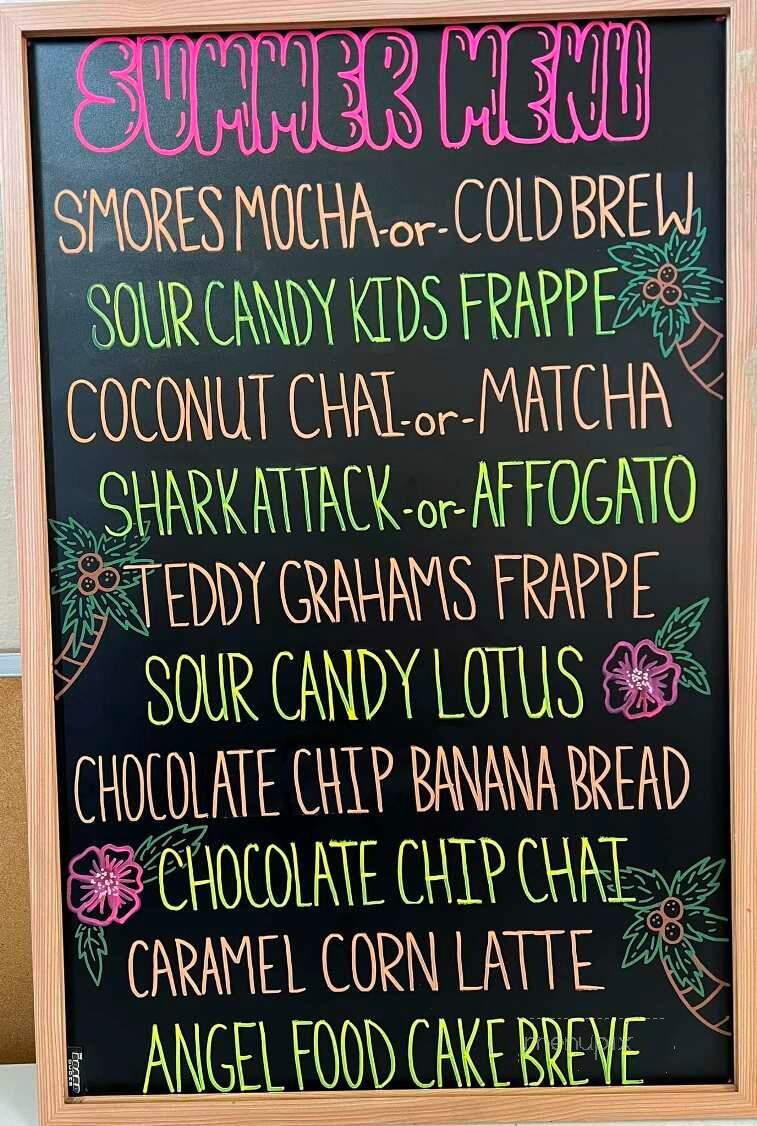 SUMMER MENU
S'MORES MOCHA -or- COLD BREW
SOUR CANDY KIDS FRAPPE
COCONUT CHAI -or- MATCHA
SHARK ATTACK -or- AFFOGATO
TEDDY GRAHAMS FRAPPE
SOUR CANDY LOTUS
CHOCOLATE CHIP BANANA BREAD
CHOCOLATE CHIP CHAI
CARAMEL CORN LATTE
ANGEL FOOD CAKE BREVE
menupix